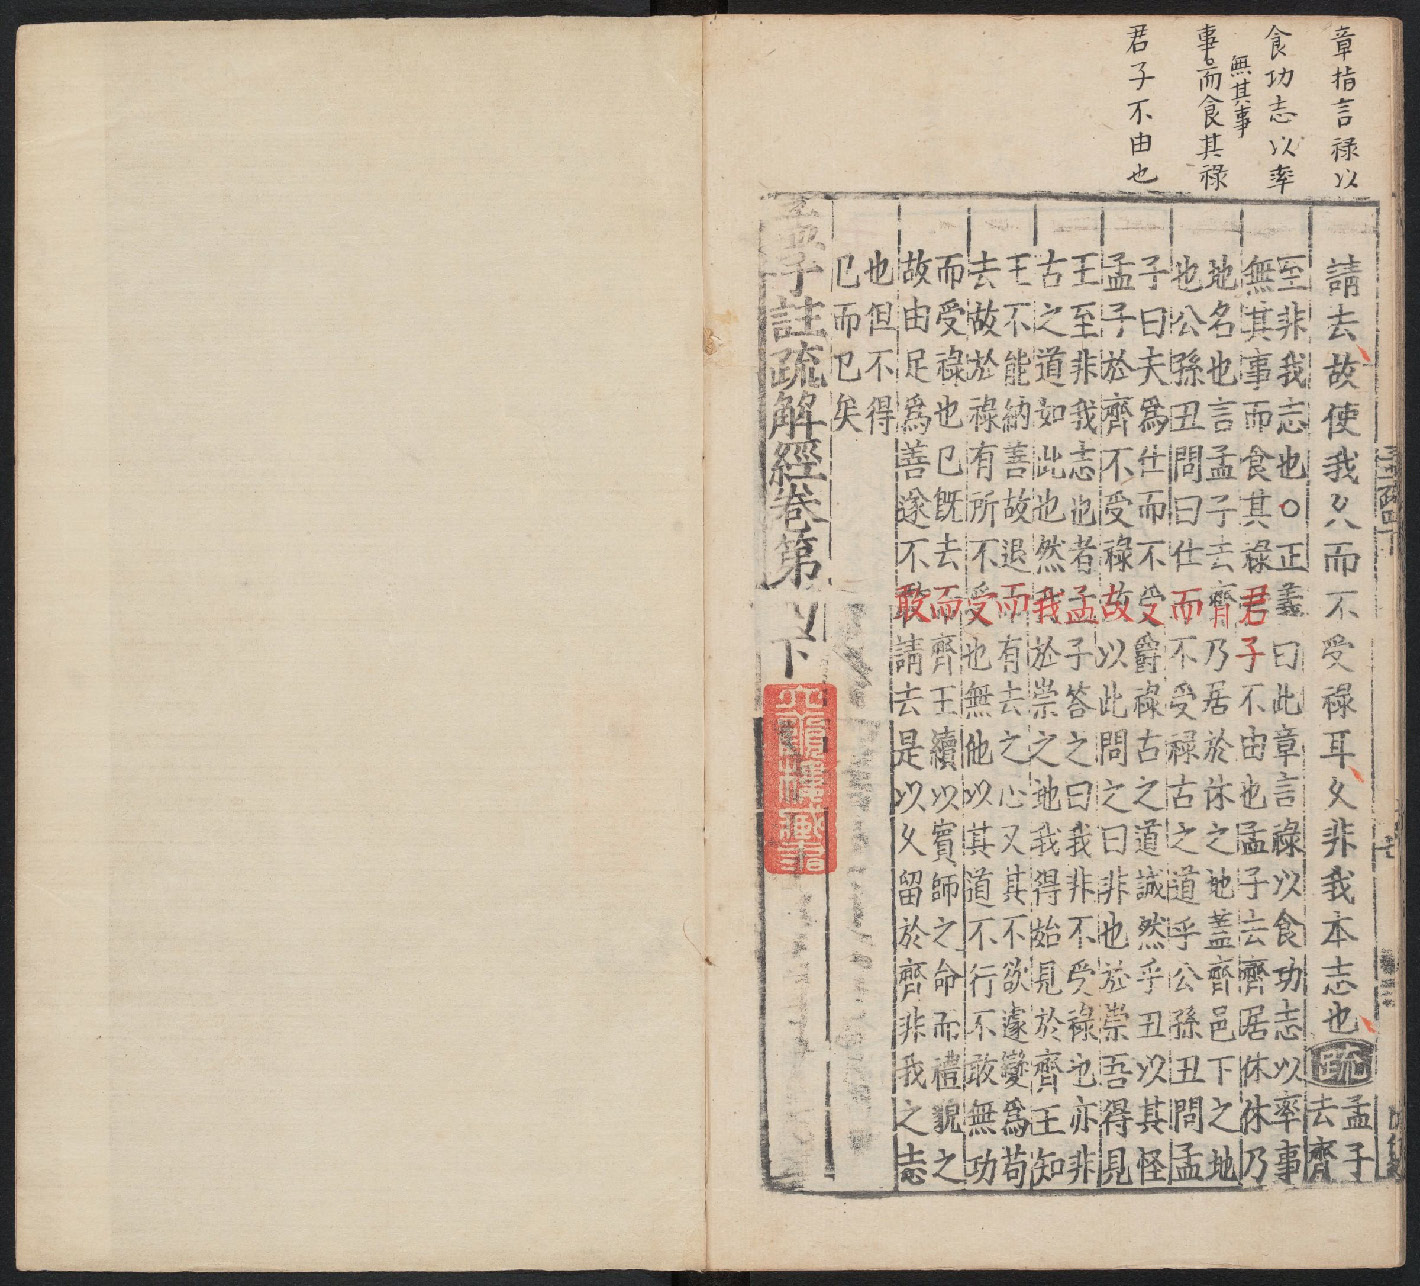 章指言祿以
食功志以率
無其事
事而食其祿
君子不由也
請去故使我久而不受祿耳久非我本志也疏孟子
去齊
至非我志也○正義曰此章言祿以食功志以率事
無其事而食其祿君子不由也孟子去齊居休休乃
地名也言孟子去齊乃居於休之地蓋齊邑下之地
也公孫丑問曰仕而不受祿古之道乎公孫丑問孟
子曰夫爲仕而不受爵祿古之道誠然乎丑以其怪
孟子於齊不受祿故以此問之曰非也於崇吾得見
王至非我志也者孟子答之曰我非不受祿也亦非
古之道如此也然我於崇之地我得始見於齊王知
王不能納善故退而有去之心又其不欲遽變爲苟
去故於祿有所不受也無他以其道不行不敢無功
而受祿也已既去而齊王續以賓師之命而禮貌之
故由足爲善遂不敢請去是以久留於齊非我之志
也但不得
已而已矣
孟子註疏解經卷第四下
樓藏書